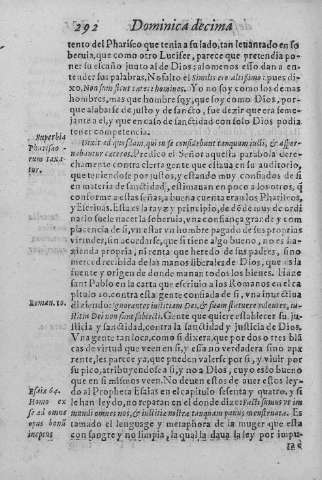 292 Dominica dezima
tento del Phariseo que tenia a su lado, tan leuantado en so
beruia, que como otro Lucifer, parece que pretendia po-
ner su escaño junto al de Dios: a lo menos esso dan a en-
tender sus palabras, No salto el Similis ero altissimo: pues di-
xo, Non sum sicut cæteri homines. Yo no soy como los demas
hombres, mas que hombre soy, que soy como Dios, por-
que alabarse de justo y de sancto, fue dezir que era seme-
jante a el, y que en caso de sanctidad con solo Dios podia
tener competencia.
Superbia
Phariseo-
rum taxa-
tur.
Dixit ad quosdam, qui in se confidebant tanquam iusti, & asper-
nabantur cæteros. Predico el Señor aquesta parabola dere-
chamente contra cierta gente que estaua en su auditorio,
que teniendose por justos, y estando muy confiados de si
en materia de sanctidad, estimauan en poco a los otros, q̃
conforme a estas señas, a buena cuenta eran los Phariseos,
y Escriuas. Esta es la rayz y principio, de dõde muy de ordi
nario suele nacer la soberuia, vna confiança grande y com
placencia de si, vn estar vn hombre pagado de sus proprias
virtudes, sin acordarse, que si tiene algo bueno, no es ha-
zienda propria, ni renta que heredo de sus padres, sino
merced recibida de las manos liberales de Dios, que es la
fuente y origen de donde manan todos los bienes. Haze
sant Pablo en la carta que escriuio a los Romanos en el ca
pitulo 10. contra esta gente confiada de si, vna inuectiua
Roman. 10.
diziendo: Ignorantes iustitiam Dei, & suam statuere volentes, iu-
stitiæ Dei non sunt subiecti. Gente que quiere establecer su ju-
sticia y sanctidad, contra la sanctidad y justicia de Dios.
Vna gente tan loca, como si dixera, que por dos o tres blã
cas de virtud que veen en si, y essa no verdadera sino apa
rente, les parece ya, que pueden valerse por si, y viuir por
su pico, atribuyendosela a si, y no a Dios, cuyo es lo bueno
que en si mismos veen. No deuen estos de auer estas ley-
Esaiæ 64.
Homo ex
se ad omne
opus bonũ
ineptus
do al Propheta Esaias en el capitulo sesenta y quatro, y si
le han leydo, no reparan en el donde dize: Facti sumus vt im
mundi omnes nos, & iustitiæ nostræ tanquam panus menstruatæ. Es
tomado el lenguage y metaphora de la muger que esta
con sangre y no limpia, la qual la daua la ley por impu-